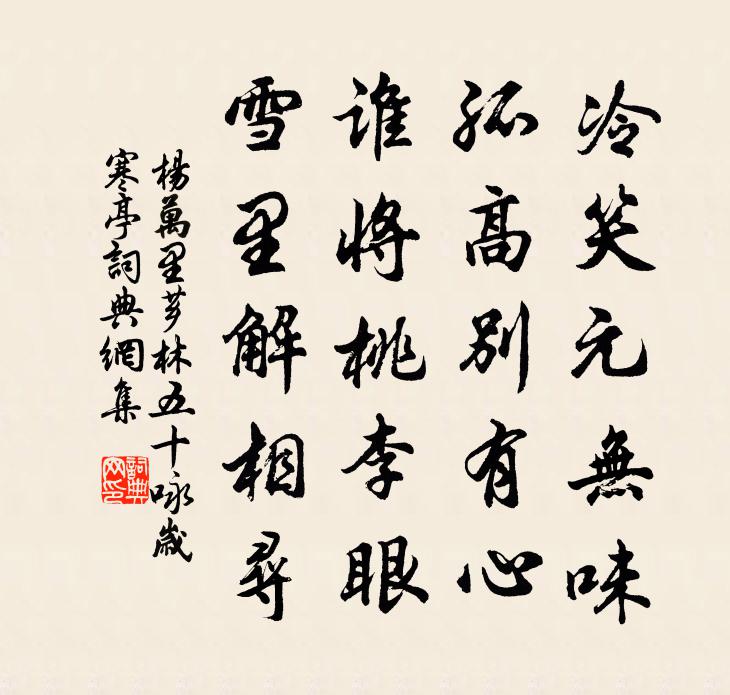 冷笑元無味
孤高別有心
誰將桃李眼
雪里解相尋
楊萬里芗林五十咏歲
寒亭詞典網集
詞典
网